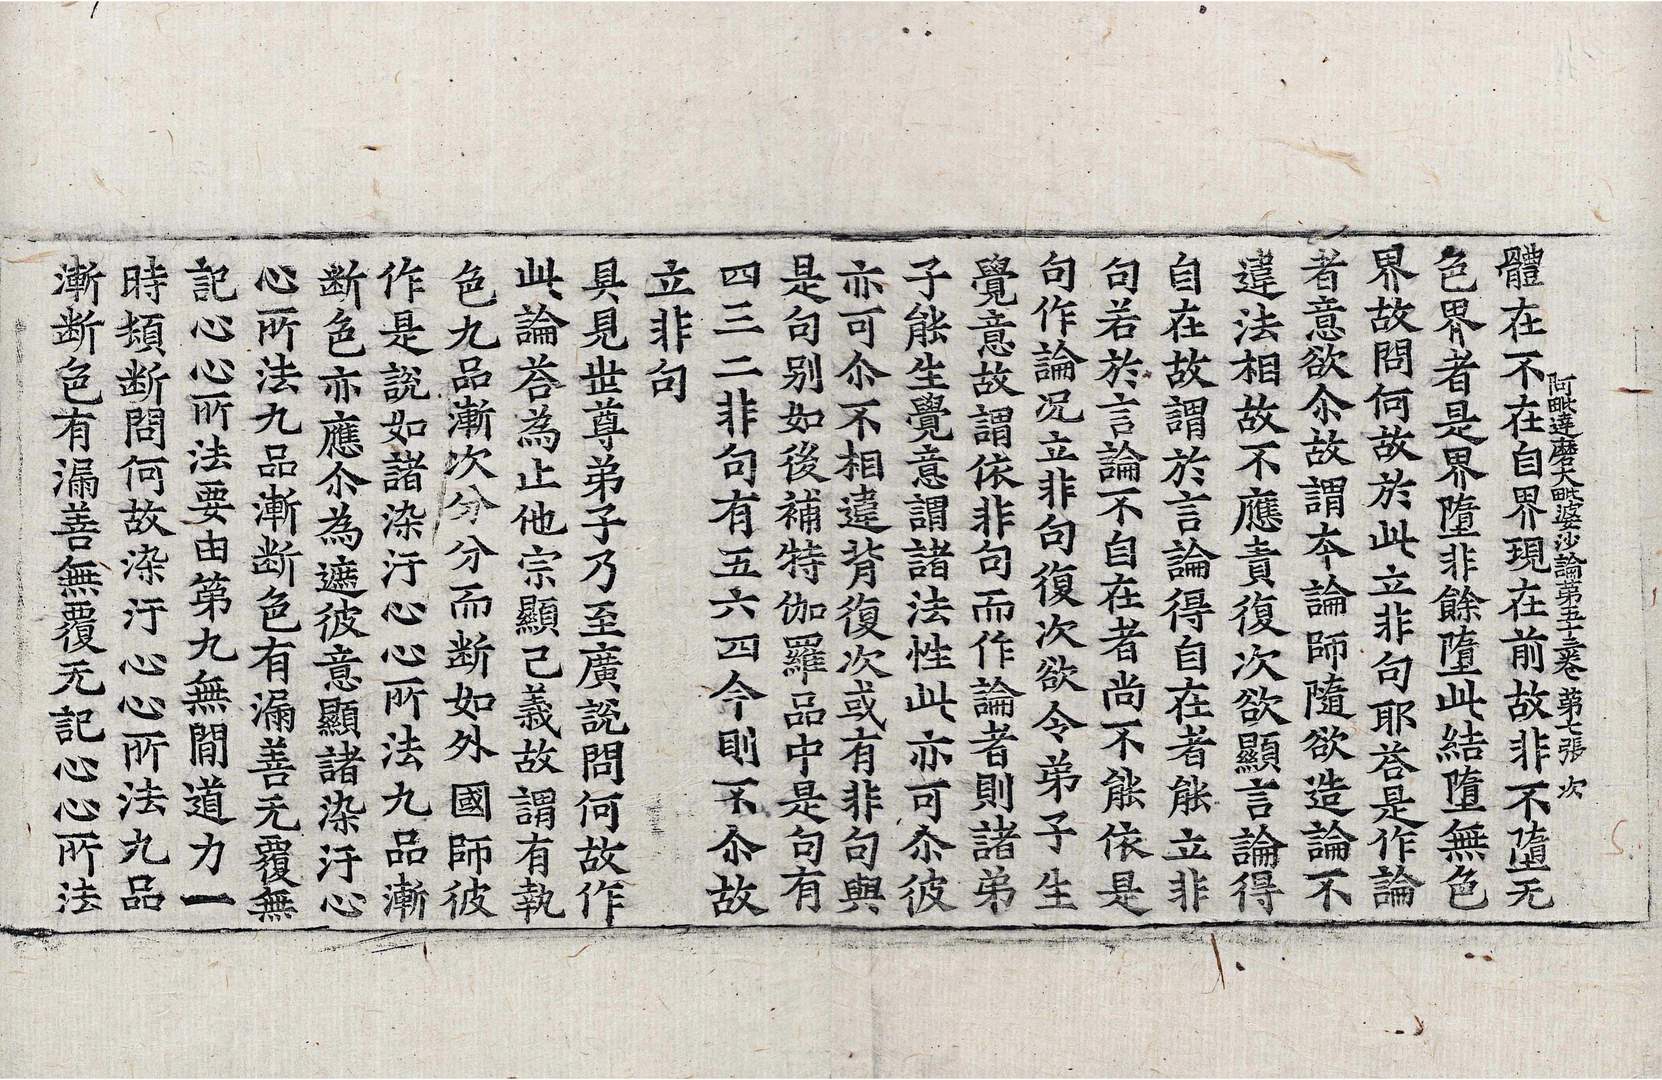 阿毗達磨大毗婆沙論第五十三卷 第七張 次
體在不在自界現在前故非不墮无
色界者是界墮非餘墮此結墮無色
界故問何故於此立非句耶荅是作論
者意欲尒故謂本論師隨欲造論不
違法相故不應責復次欲顯言論得
自在故謂於言論得自在者能立非
句若於言論不自在者尚不能依是
句作論况立非句復次欲令弟子生
覺意故謂依非句而作論者則諸弟
子能生覺意謂諸法性此亦可尒彼
亦可尒不相違背復次或有非句與
是句别如後補特伽羅品中是句有
四三二非句有五六四今則不尒故
立非句
具見世尊弟子乃至廣說問何故作
此論荅為止他宗顯己義故謂有執
色九品漸次分分而断如外國師彼
作是說如諸染汙心心所法九品漸
断色亦應尒為遮彼意顯諸染汙心
心所法九品漸断色有漏善无覆無
記心心所法要由第九無間道力一
時頓断問何故染汙心心所法九品
漸断色有漏善無覆无記心心所法